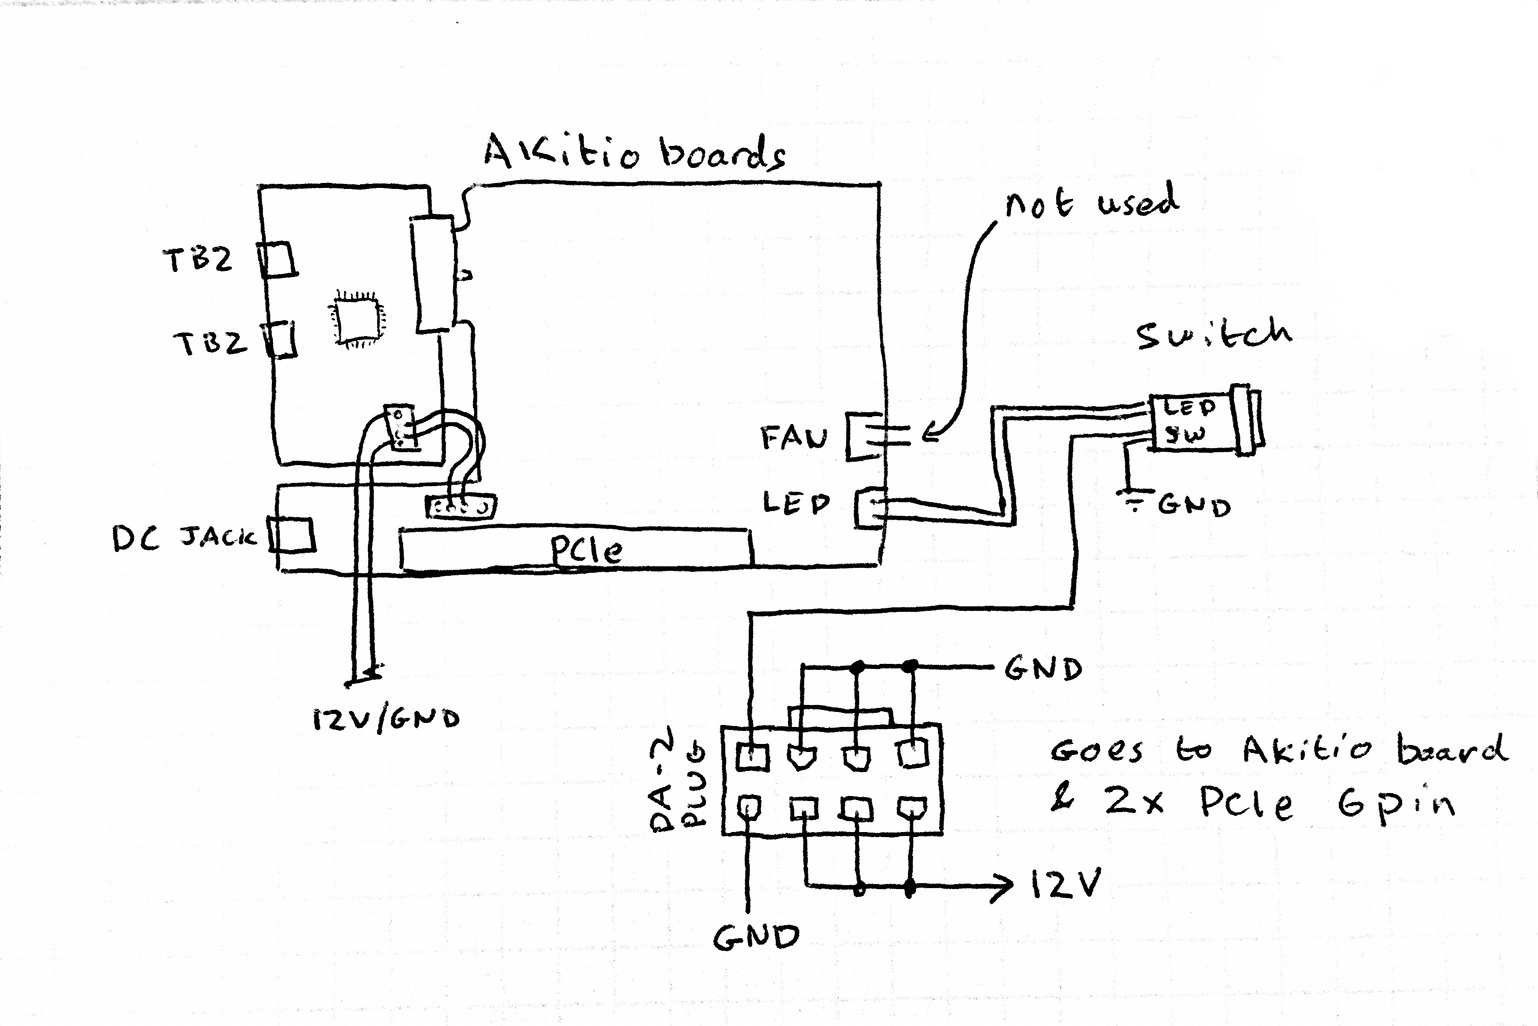 Akitio boards
not used
TB2
TB2
Switch
LED
SW
FAN
LED
GND
DC JACK
PCIe
12V/GND
GND
DA-2
PLUG
Goes to Akitio board
& 2x PCIe 6pin
12V
GND